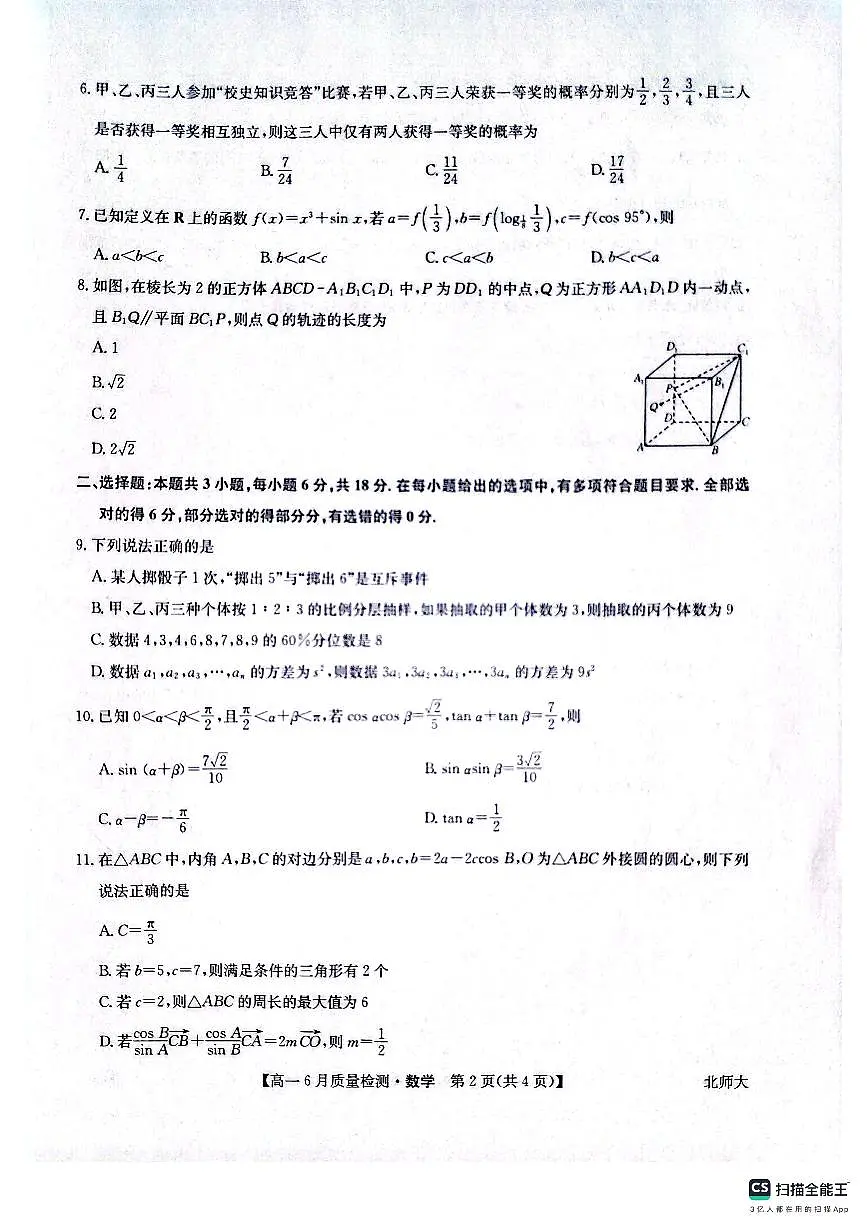 6. 甲、乙、丙三人参加“校史知识竞答”比赛,若甲、乙、丙三人荣获一等奖的概率分别为1/2,2/3,3/4,且三人
是否获得一等奖相互独立,则这三人中仅有两人获得一等奖的概率为
A. 1/4 B. 7/24 C. 11/24 D. 17/24
7. 已知定义在 R 上的函数 f(x)=x³+sin x,若 a=f(1/3),b=f(log_{1/8} 1/3),c=f(cos 95°),则
A. a<b<c B. b<a<c C. c<a<b D. b<c<a
8. 如图,在棱长为 2 的正方体 ABCD-A₁B₁C₁D₁ 中,P 为 DD₁ 的中点,Q 为正方形 AA₁D₁D 内一动点,
且 B₁Q∥平面 BC₁P,则点 Q 的轨迹的长度为
A. 1
B. √2
C. 2
D. 2√2
D₁ C₁
A₁ B₁
P
Q
D C
A B
二、选择题:本题共 3 小题,每小题 6 分,共 18 分. 在每小题给出的选项中,有多项符合题目要求. 全部选
对的得 6 分,部分选对的得部分分,有选错的得 0 分.
9. 下列说法正确的是
A. 某人掷骰子 1 次,“掷出 5”与“掷出 6”是互斥事件
B. 甲、乙、丙三种个体按 1∶2∶3 的比例分层抽样,如果抽取的甲个体数为 3,则抽取的丙个体数为 9
C. 数据 4,3,4,6,8,7,8,9 的 60%分位数是 8
D. 数据 a₁,a₂,a₃,…,aₙ 的方差为 s²,则数据 3a₁,3a₂,3a₃,…,3aₙ 的方差为 9s²
10. 已知 0<α<β<π/2,且π/2<α+β<π,若 cos αcos β=√2/5,tan α+tan β=7/2,则
A. sin (α+β)=7√2/10 B. sin αsin β=3√2/10
C. α-β=-π/6 D. tan α=1/2
11. 在△ABC 中,内角 A,B,C 的对边分别是 a,b,c,b=2a-2ccos B,O 为△ABC 外接圆的圆心,则下列
说法正确的是
A. C=π/3
B. 若 b=5,c=7,则满足条件的三角形有 2 个
C. 若 c=2,则△ABC 的周长的最大值为 6
D. 若cos B/sin A CB→+cos A/sin B CA→=2m CO→,则 m=1/2
【高一 6 月质量检测·数学 第 2 页(共 4 页)】 北师大
CS 扫描全能王™
3亿人都在用的扫描App